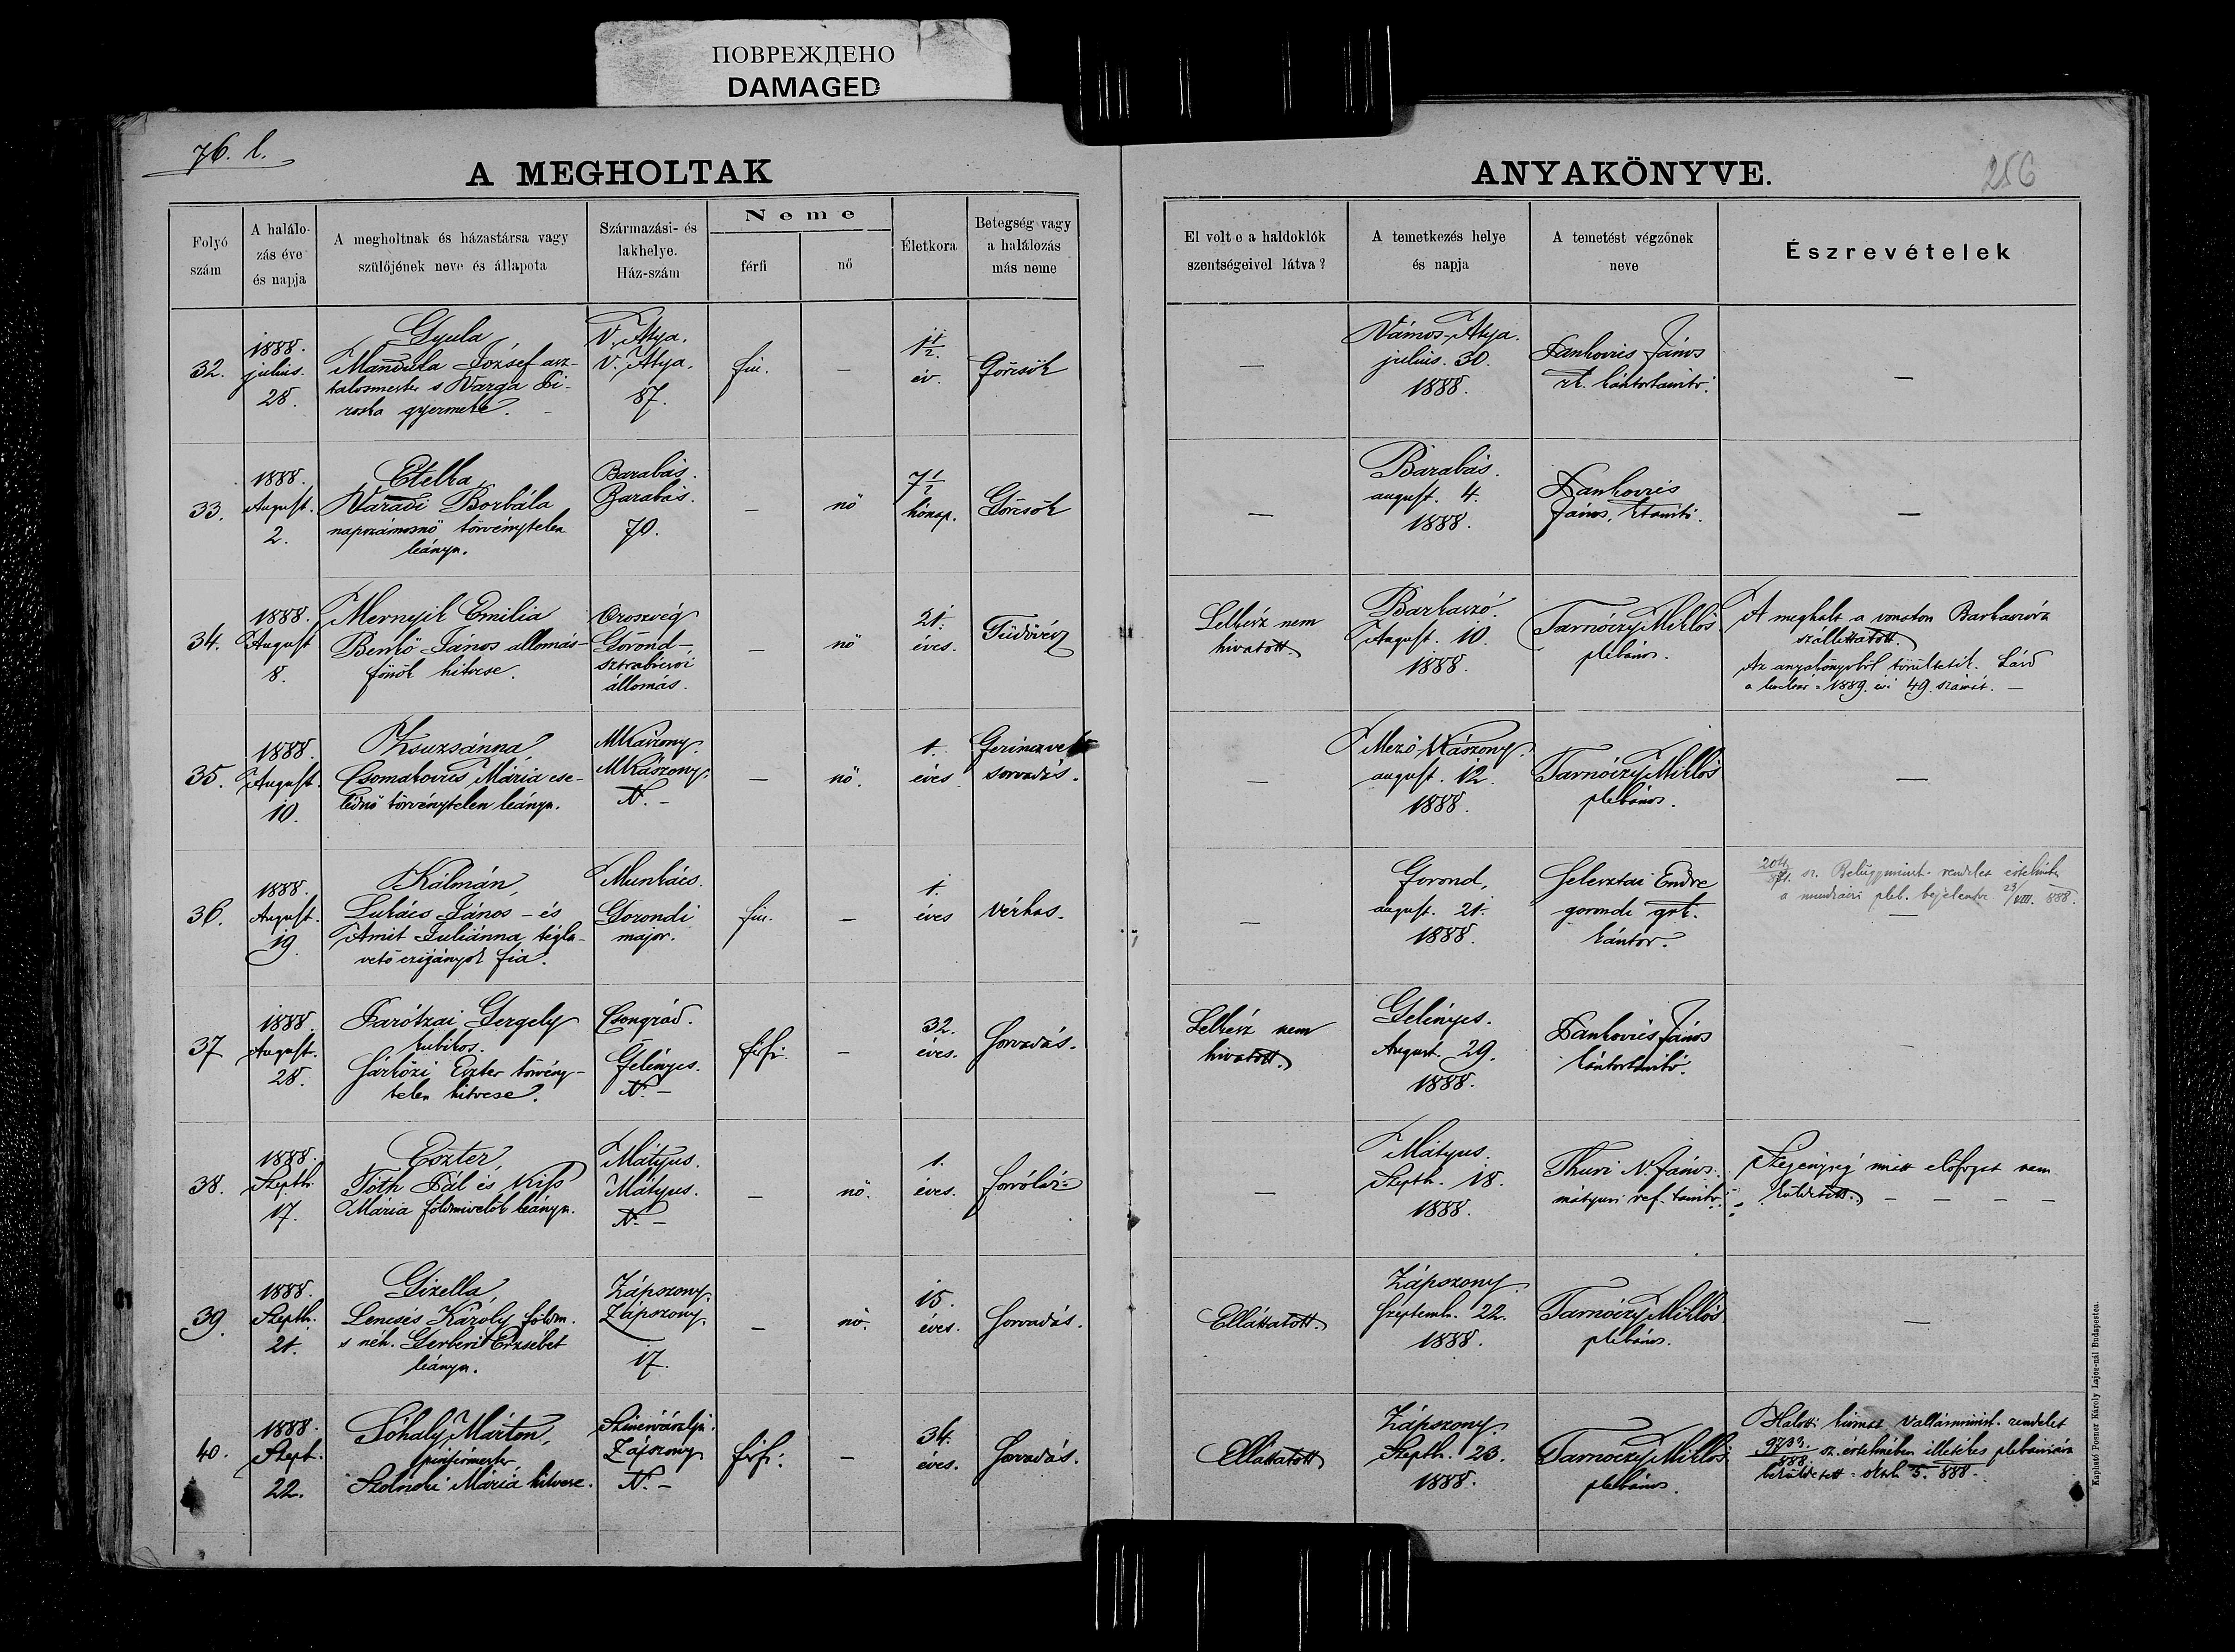 ПОВРЕЖДЕНО
DAMAGED
76. l.
A MEGHOLTAK
ANYAKÖNYVE.
256
Folyó szám
A halálozás éve és napja
A megholtnak és házastársa vagy szülőjének neve és állapota
Származási- és lakhelye. Ház-szám
Neme
férfi
nő
Életkora
Betegség vagy a halálozás más neme
El volt-e a haldoklók szentségeivel látva?
A temetkezés helye és napja
A temetést végzőnek neve
Észrevételek
32.
1888. julius. 28.
Gyula
Mandula József asz-
talosmester s Varga Pi-
roska gyermeke.
V. Atya.
V. Atya.
87.
fiu.
—
1 1/2 év.
Görcsök
—
Vámos-Atya.
julius. 30.
1888.
Jankovics János
rk. kántortanitó.
—
33.
1888. August. 2.
Etelka,
Váradi Borbála
napszámosnő törvénytelen
leánya.
Barabás.
Barabás.
70.
—
nő
7 1/2 hónap.
Görcsök
—
Barabás.
august. 4.
1888.
Jankovics
János, ktanitó.
—
34.
1888. August 8.
Mernyik Emilia
Benkő János állomás-
főnök hitvese.
Oroszvég
Gorond-
sztrabicsói
állomás.
—
nő
21. éves.
Tüdővész
Lelkész nem
hivatott.
Barkaszó.
August. 10.
1888.
Tarnóczy Miklós
plébános.
A meghalt a vonaton Barkaszóra
szállittatott.
Az anyakönyvből töröltetik. Lásd
1889. évi 49. számát. —
35.
1888. August. 10.
Zsuzsánna,
Csomakovics Mária cse-
lédnő törvénytelen leánya.
MKászony.
MKászony.
N. —
—
nő.
1. éves
Gerinczvelő
sorvadás.
—
Mező Kászony.
august. 12.
1888.
Tarnóczy Miklós
plébános.
—
36.
1888. August. 19
Kálmán,
Lukács János — és
Amit Juliánna tégla-
vető czigányok fia.
Munkács.
Gorondi
major.
fiu.
—
1. éves
Vérhas.
—
Gorond,
august. 21.
1888.
Endre
gorondi gtk.
kántor.
sz. Belügyminist. rendelet értelmében
a munkácsi pleb. bejelentve 23/VIII. 888.
—
37
1888. August. 28.
Gergely
kubikos.
Sárközi Eszter törvény-
telen hitvese.
Csongrád.
Gelényes.
N. —
férfi.
—
32. éves.
Sorvadás.
Lelkész nem
hivatott.
Gelényes.
August. 29.
1888.
Jankovics János
kántortanitó.
—
38.
1888. Septb. 17.
Eszter,
Tóth Pál és Kiss
Mária földmivelők leánya.
Mátyus.
Mátyus.
N. —
—
nő.
1. éves.
forróláz
—
Mátyus.
Septb. 18.
1888.
Thuri N. János
mátyusi ref. tanitó.
Szegénység miatt előfogat nem
küldetett. — — — —
39.
1888. Septb. 21.
Gizella,
Lencsés Károly földm.
s néh. Gerberit Erzsébet
leánya.
Zápszony.
Zápszony.
17.
—
nő.
15. éves.
Sorvadás.
Elláttatott.
Zápszony
Septemb. 22.
1888.
Tarnóczy Miklós
plébános.
—
40.
1888. Sept. 22.
Sóhaly Márton,
Szolnoki Mária hitvese.
Szinérváralja.
Zápszony
N. —
férfi.
—
34. éves.
Sorvadás.
Elláttatott
Zápszony.
Septb. 23.
1888.
Tarnóczy Miklós
plébános.
Halotti kivonat Vallásminist. rendelet
9733/888. sz. értelmében illetékes plebániára
beküldetett 5. 888.
Kapható Posner Károly Lajos-nál Budapesten.